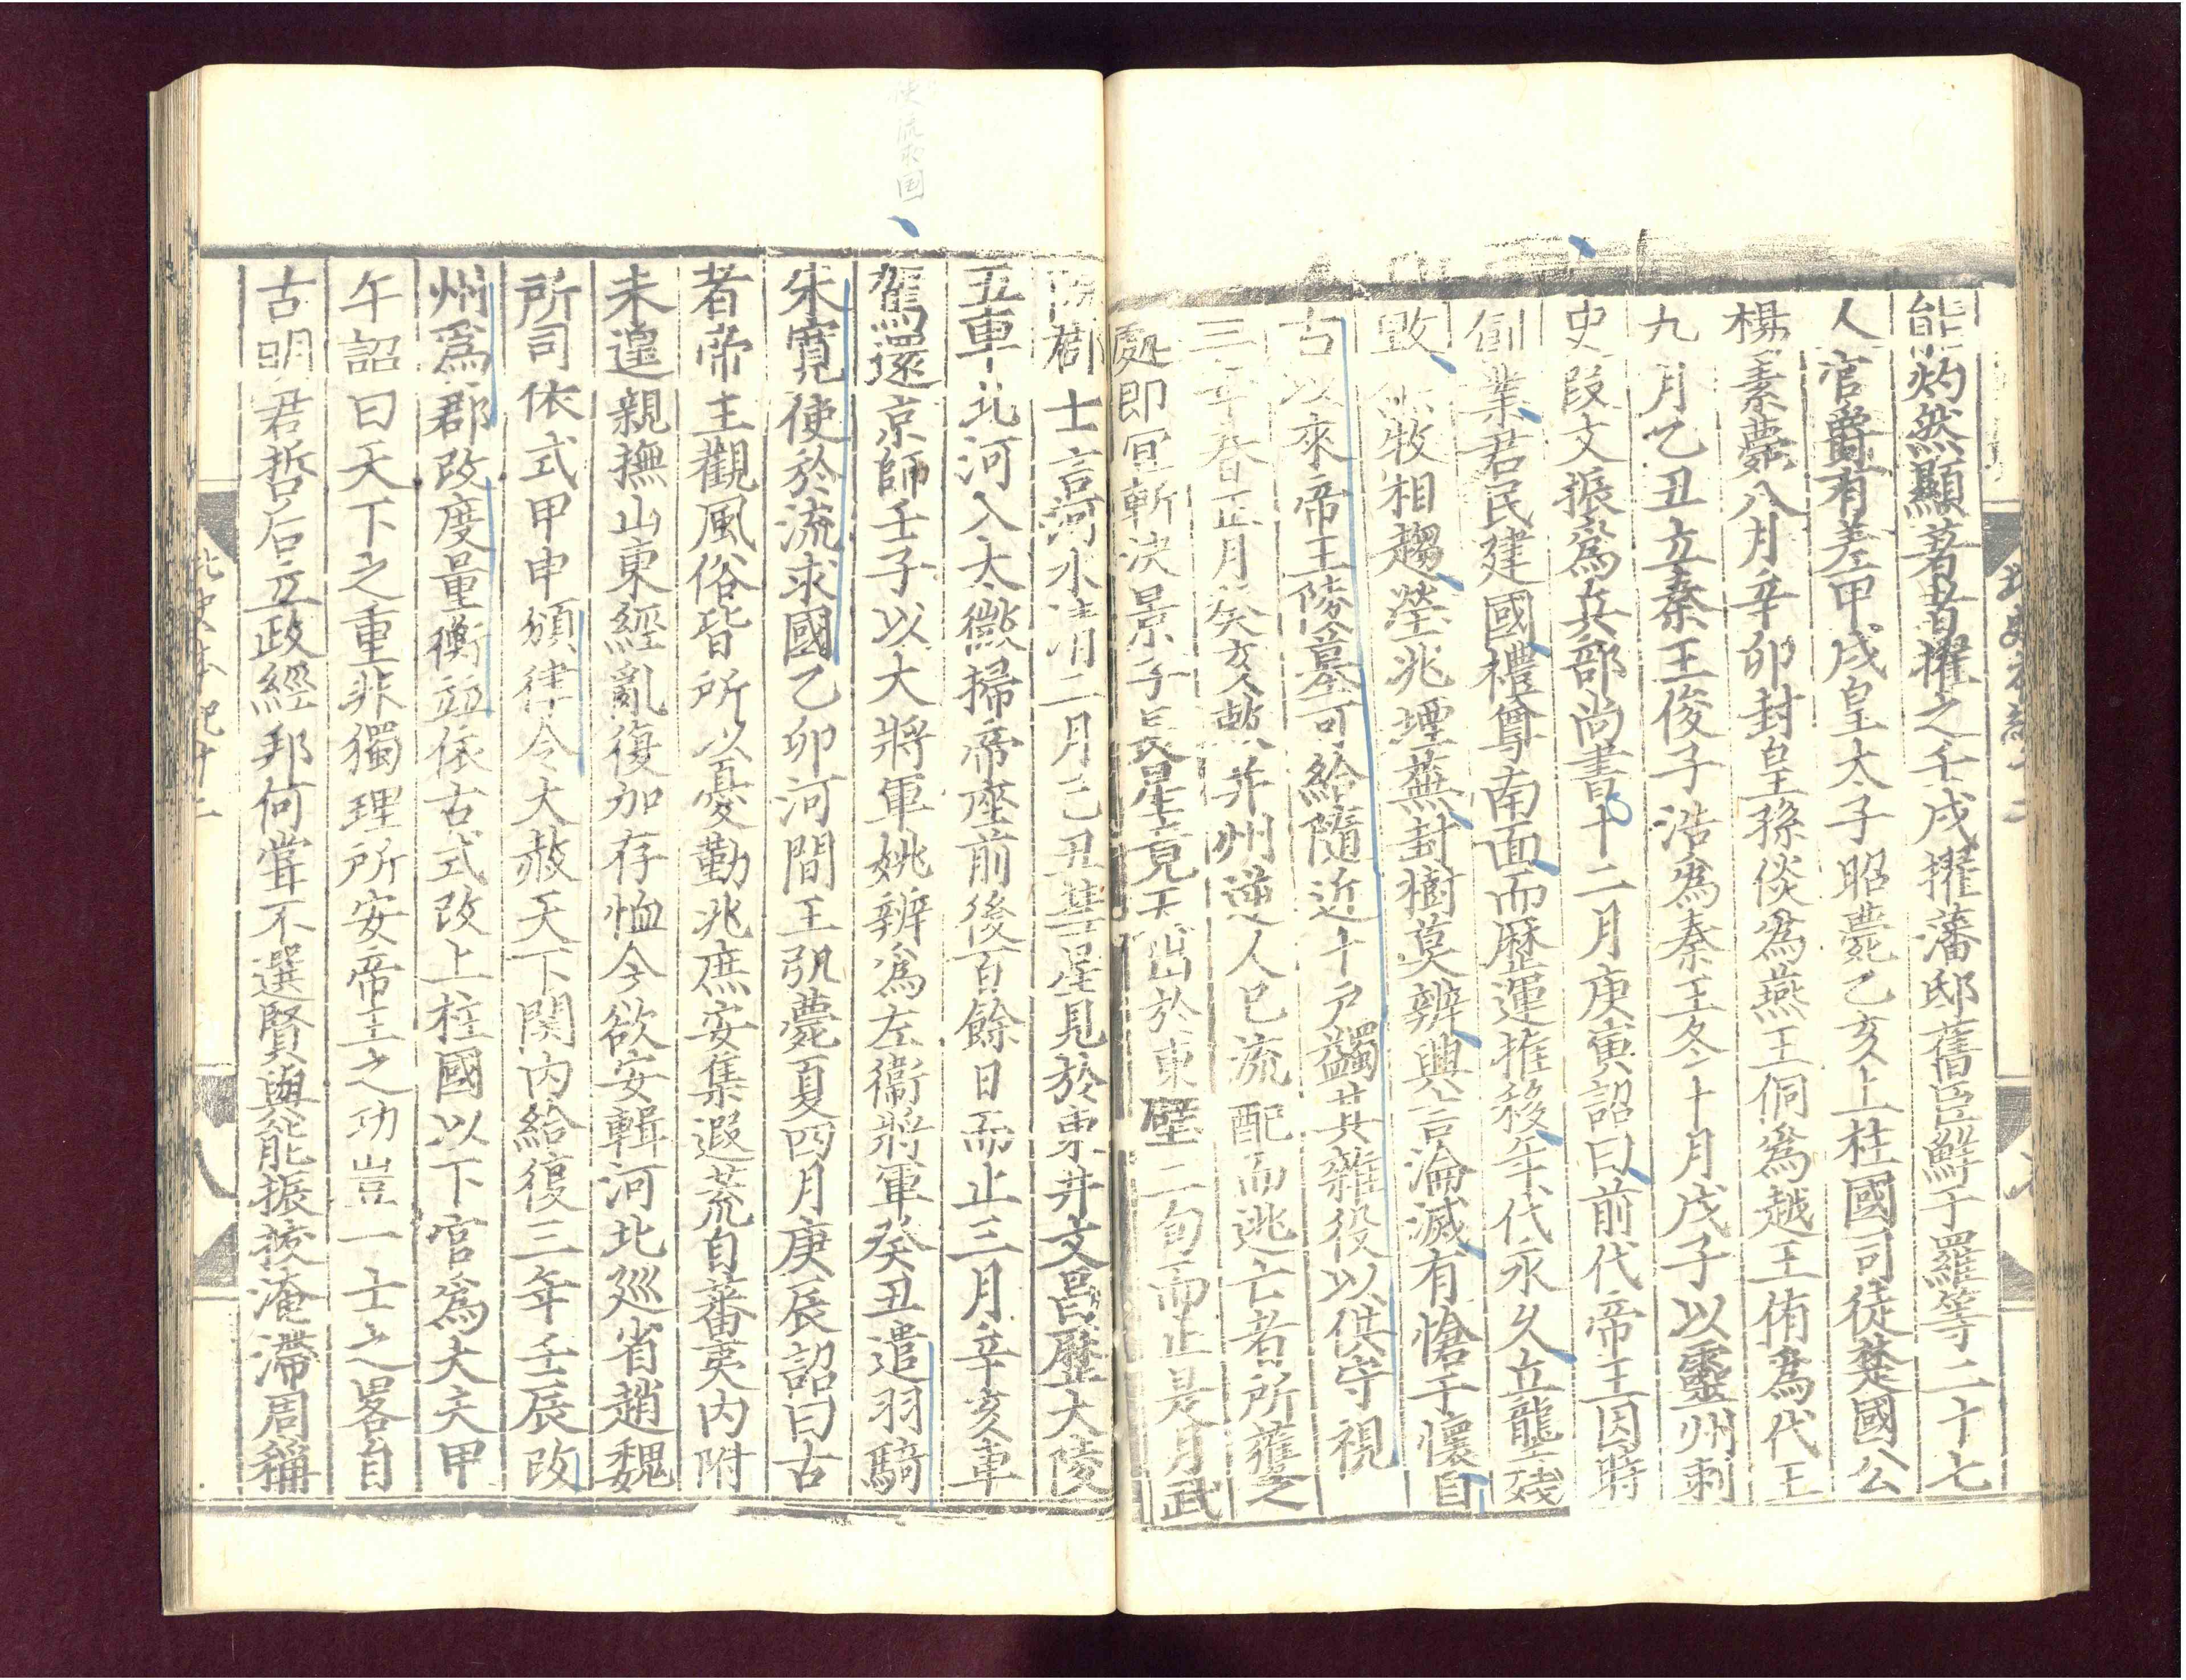 能灼然顯著者擢之壬戌擢藩邸舊臣鮮于羅等二十七
人官爵有差甲戌皇太子昭薨乙亥上柱國司徒楚國公
楊素薨八月辛卯封皇孫倓爲燕王侗爲越王侑爲代王
九月乙丑立秦王俊子浩爲秦王冬十月戊子以靈州刺
史段文振爲兵部尚書十二月庚寅詔曰前代帝王因時
創業君民建國禮尊南面而歷運推移年代永久丘壟殘
毀樵牧相趨塋兆堙蕪封樹莫辨興言淪滅有愴于懷自
古以來帝王陵墓可給隨近十戶蠲其雜役以供守視
三年春正月癸亥勑并州逆人巳流配而逃亡者所獲之
處即冝斬決景子長星竟天出於東壁二旬而止是月武
陽郡士言河水清二月己丑彗星見於東井文昌歷大陵
五車北河入太微掃帝座前後百餘日而止三月辛亥車
駕還京師壬子以大將軍姚辨爲左衞將軍癸丑遣羽騎
朱寬使於流求國乙卯河間王弘薨夏四月庚辰詔曰古
者帝王觀風俗皆所以憂勤兆庶安集遐荒自蕃夷内附
未遑親撫山東經亂復加存恤今欲安輯河北廵省趙魏
所司依式甲申頒律令大赦天下関内給復三年壬辰改
州爲郡改度量衡並依古式改上柱國以下官爲大夫甲
午詔曰天下之重非獨理所安帝王之功豈一士之畧自
古明君哲后立政經邦何嘗不選賢與能振拔淹滯周稱
北史本紀十二
八
使流求国